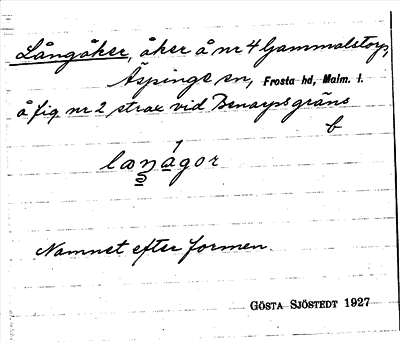 Långåker, åker å nr 4 Gammalstorp,
Äspinge sn, Frosta hd, Malm. l.
å fig. nr 2 strax vid Benarps gräns
b
laŋagor
Namnet efter formen.
GÖSTA SJÖSTEDT 1927